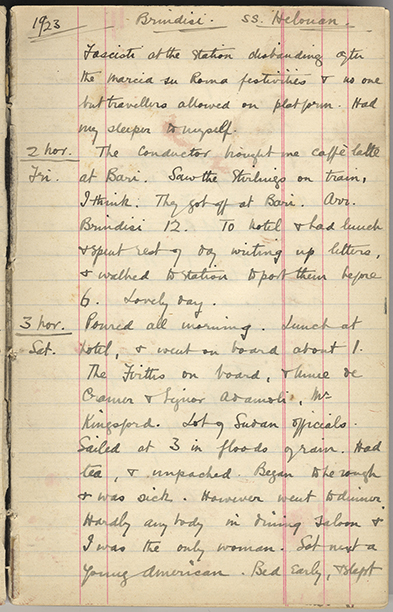 1923 Brindisi. SS. Helouan.
Fascisti at the station disbanding after
the marcia su Roma festivities & no one
but travellers allowed on platform. Had
my sleeper to myself.
2 Nov. The Conductor brought me caffè latte
Fri. at Bari. Saw the Stirlings on train,
I think. They got off at Bari. Arr.
Brindisi 12. To hotel & had lunch
& spent rest of day writing up letters,
& walked to station to post them before
6. Lovely day.
3 Nov. Poured all morning. Lunch at
Sat. hotel, & went on board about 1.
The Firths on board, & Annie de
Cramer & Signor Adamoli, Mr
Kingsford. Lot of Sudan officials.
Sailed at 3 in floods of rain. Had
tea, & unpacked. Began to be rough
& was sick. However went to dinner.
Hardly anybody in dining saloon &
I was the only woman. Sat next a
young American. Bed early, & slept